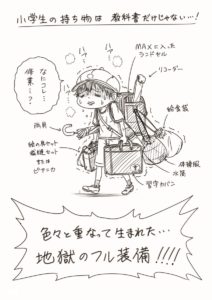 小学生の持ち物は 教科書だけじゃない…!
MAXに入った
ランドセル
リコーダー
ハァ…
ハァ…
なにコレ…
修業…?
給食袋
雨具
絵の具セット
裁縫セット
または
ピアニカ
体操服
水筒
習字カバン
色々と重なって生まれた…
地獄のフル装備!!!!